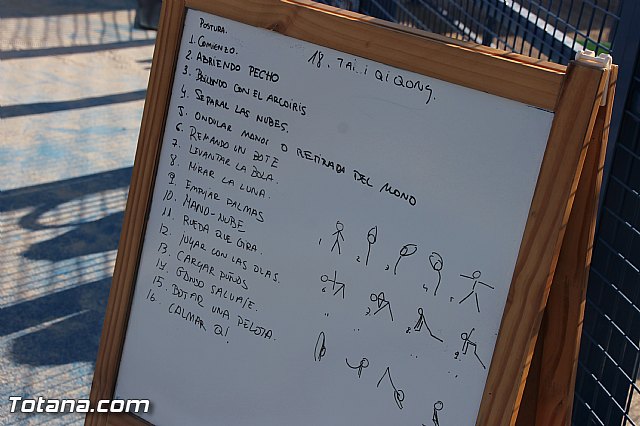 POSTURA.
18. TAI. i QI QONG.
1. COMIENZO.
2. ABRIENDO PECHO
3. BAILANDO CON EL ARCOIRIS
4. SEPARAR LAS NUBES.
5. ONDULAR MANOS O RETIRADA DEL MONO
6. REMANDO UN BOTE
7. LEVANTAR LA BOLA.
8. MIRAR LA LUNA.
9. EMPUJAR PALMAS
10. MANO-NUBE
11. RUEDA QUE GIRA.
12. JUGAR CON LAS OLAS.
13. CARGAR PUÑOS
14. GANSO SALVAJE.
15. BOTAR UNA PELOTA.
16. CALMAR QI!
1 2 3 4 5
6 7 8 9
Totana.com